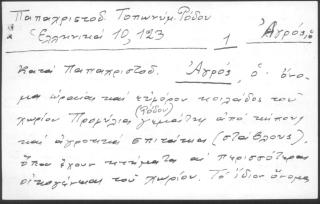 Παπαχριστοδ. Τοπωνύμ. Ρόδου
Ἑλληνικά 10, 123 1 Ἀγρός,
Κατά Παπαχριστοδ. Ἀγρός, ὁ· ὄνο-
μα ὡραίας καί εὐφόρου κοιλάδος τοῦ
(Ρόδου)
χωρίου Προφύλια γεμάτης ἀπό κήπους
καί ἀγροτικά σπιτάκια (στάβλους),
ὅπου ἔχουν κτήματα αἱ περισσότεραι
οἰκογένειαι τοῦ χωρίου. Τό ἴδιον ὄνομα